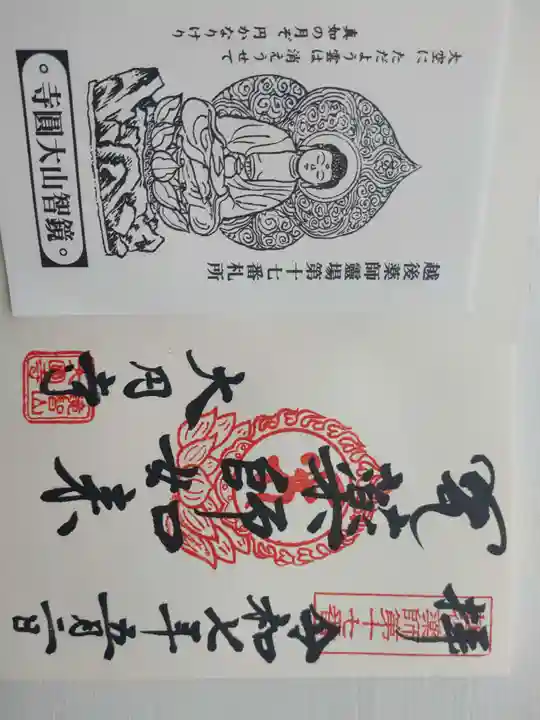 越後薬師靈場第十七番札所
大空に ただよう雲は 消えうせて
真如の月ぞ 円かなりけり
鏡智山大圓寺
拝
薬師第十七番
令和七年五月二日
薬師如来
大円寺